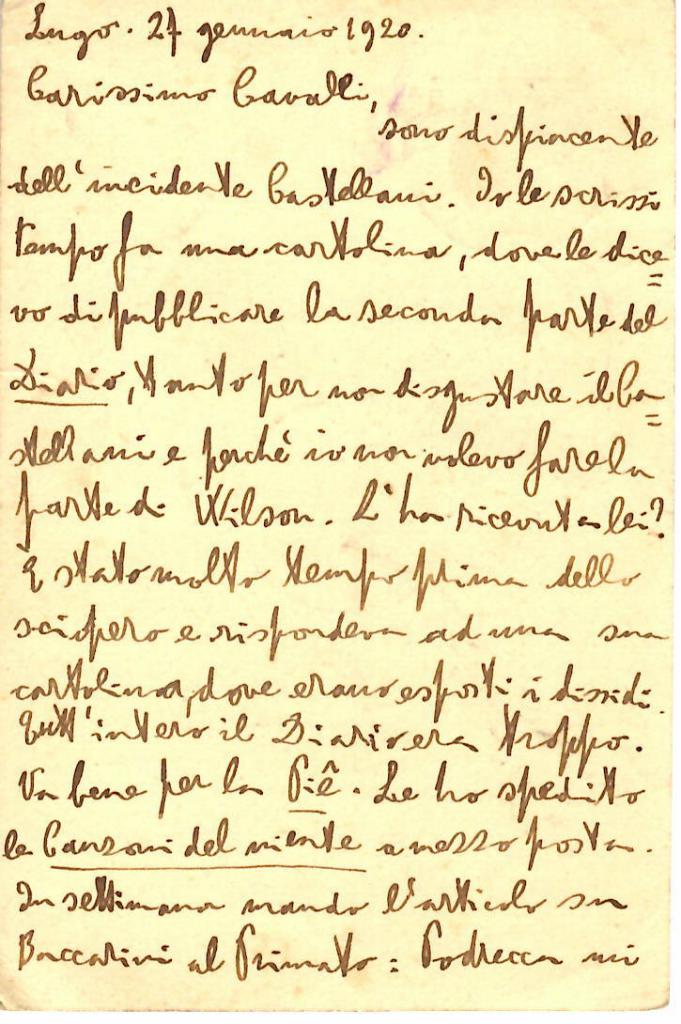 Lugo. 27 gennaio 1920.
Carissimo Cavalli,
sono dispiacente
dell'incidente Castellani. Io le scrissi
tempo fa una cartolina, dove le dice=
vo di pubblicare la seconda parte del
Diario, tanto per non disgustare il Ca=
stellani e perchè io non volevo fare la
parte di Wilson. L'ha ricevuta lei?
È stato molto tempo prima dello
sciopero e rispondeva ad una sua
cartolina, dove erano esposti i dissidi.
Tutt'intero il Diario era troppo.
Va bene per la Piê. Le ho spedito
le Canzoni del niente a mezzo posta.
In settimana mando l'articolo su
Baccarini al Primato: Podrecca mi